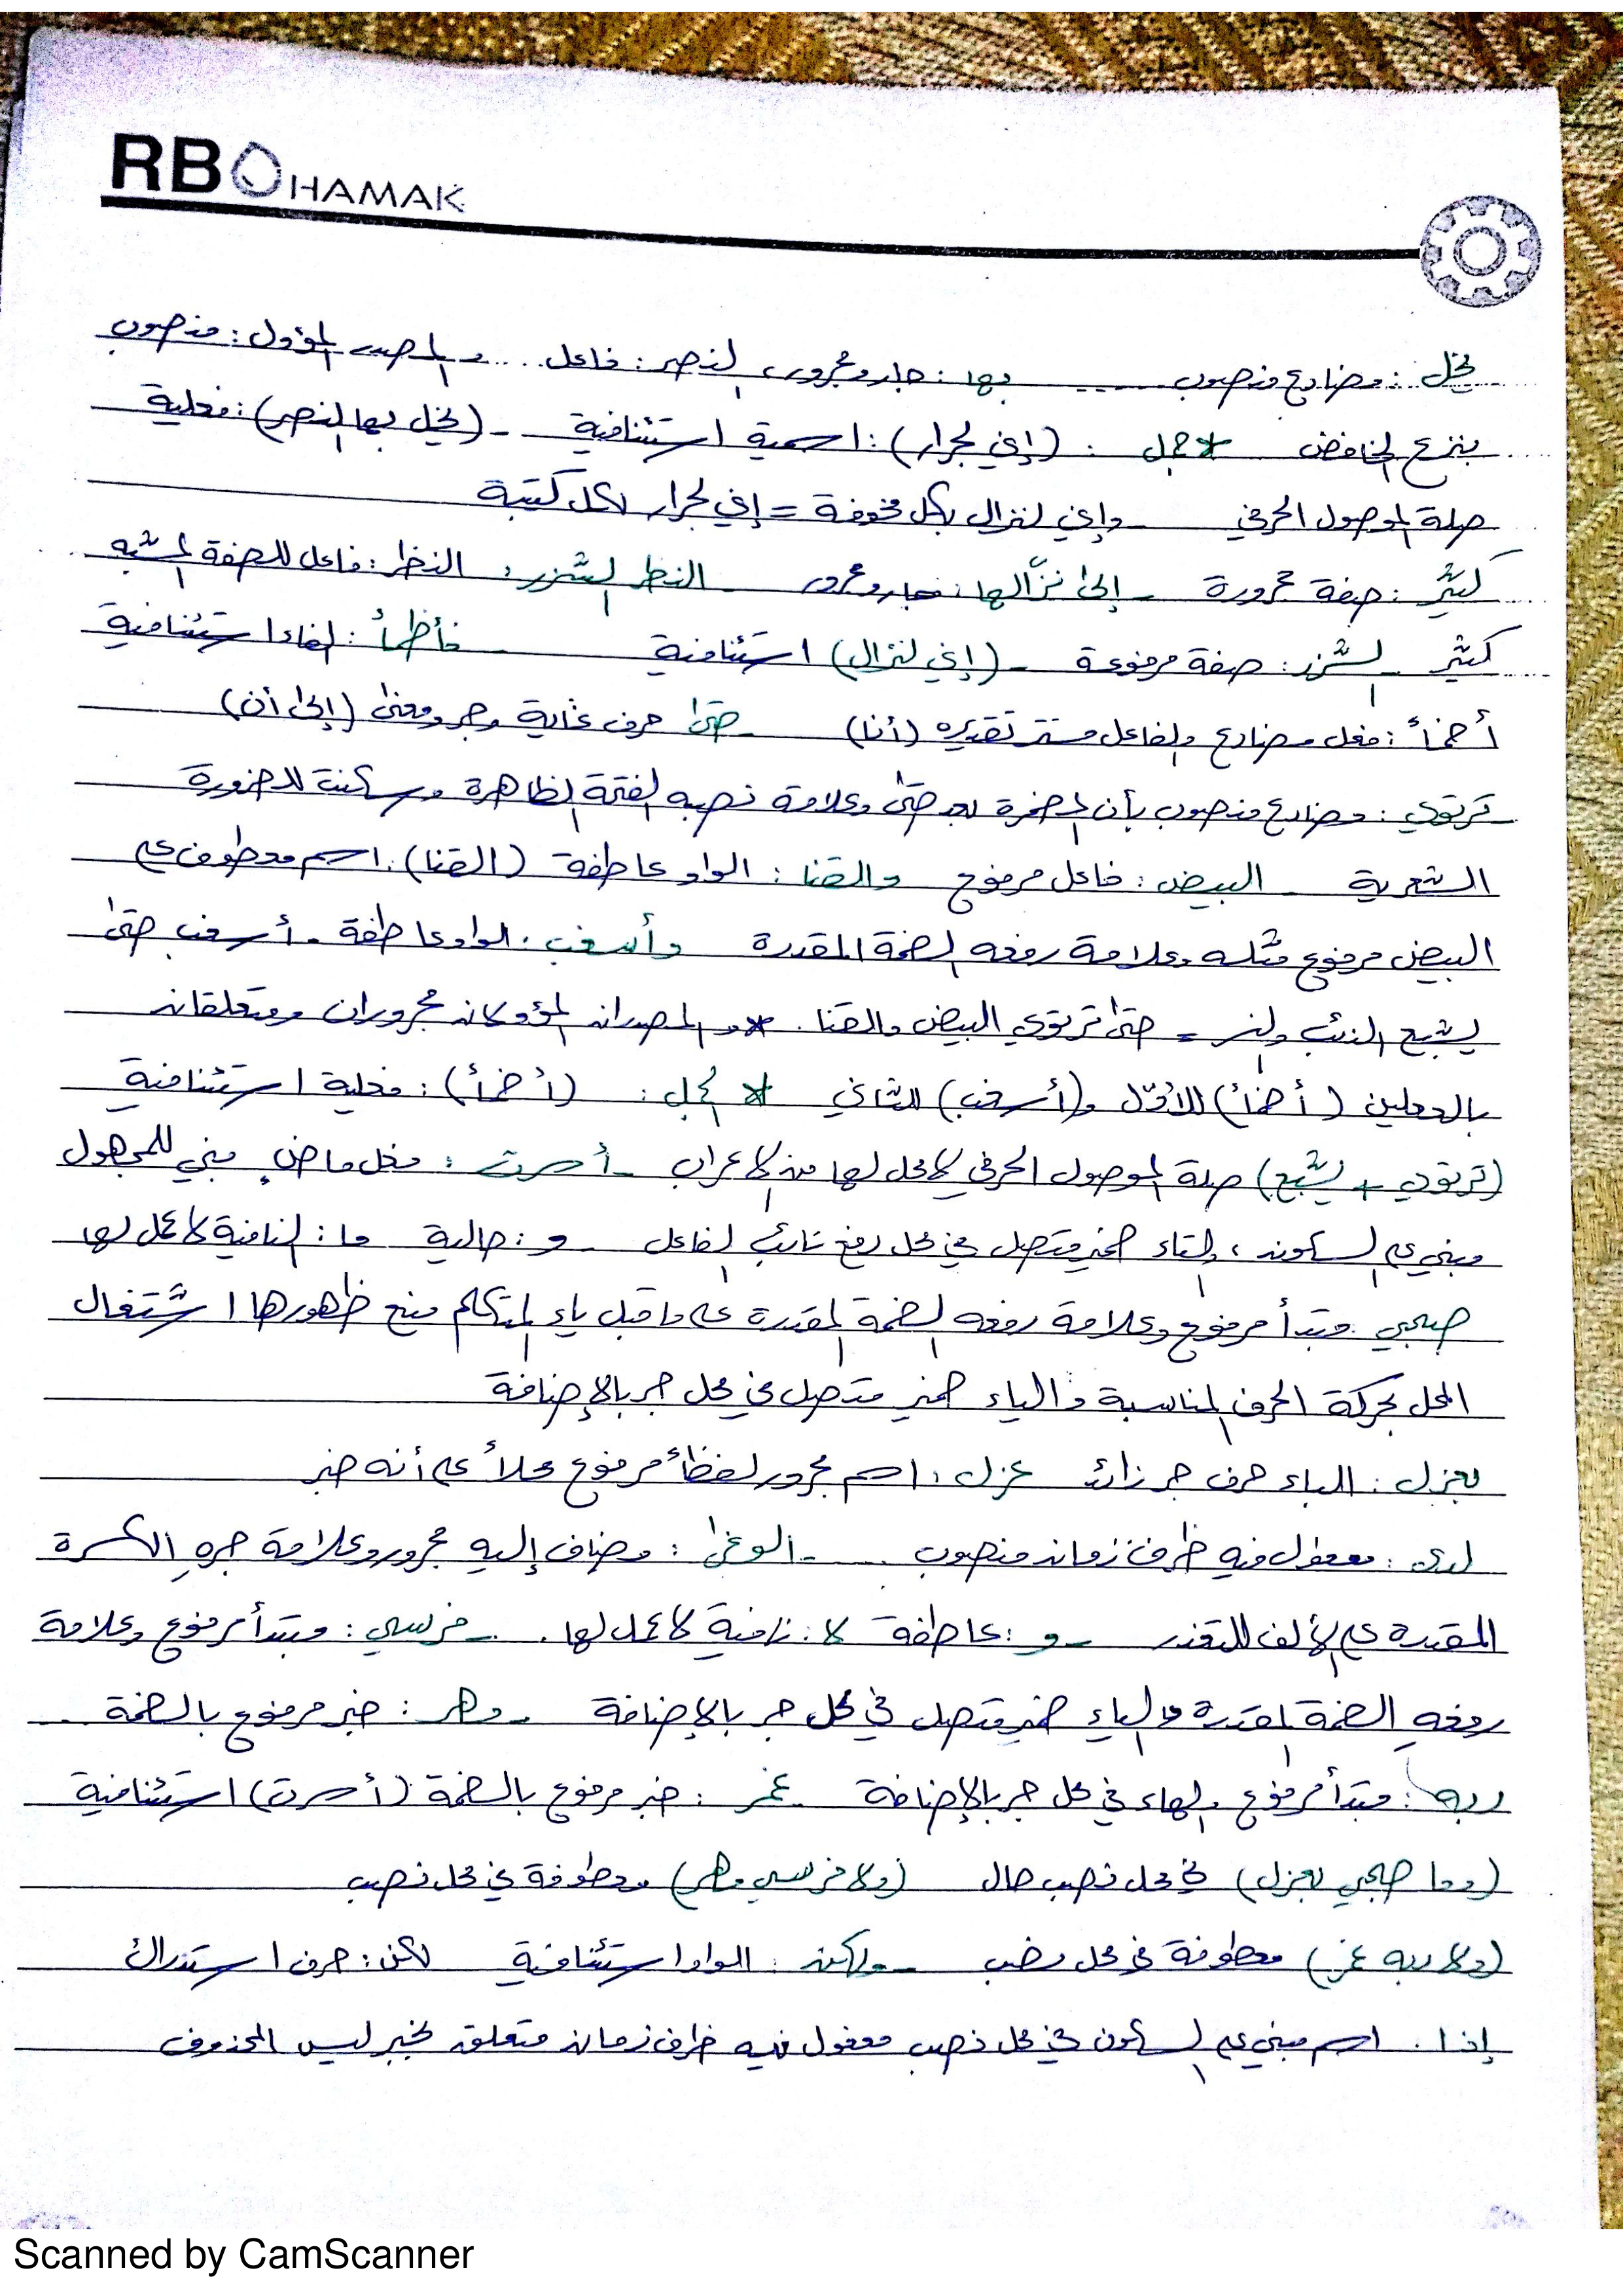 RB HAMAK
يخل : مضارع منصوب ..... بها : جار ومجرور، النصر : فاعل ... والمصدر المؤول : منصوب
بنزع الخافض * جمل : (إني لجرار) : اسمية استئنافية - (يخل بها النصر) : فعلية
صلة الموصول الحرفي - وإني لنزال بكل مخوفة = إني لجرار لكل كتيبة
كثير : صفة مجرورة - إلى نزّالها : جار ومجرور - النظر الشزر : النظر : فاعل للصفة المشبه
كثير - الشزر : صفة مرفوعة - (إني لنزال) استئنافية - فأظمأ : الفاء استئنافية
أظمأ : فعل مضارع والفاعل مستتر تقديره (أنا) - حتى حرف غاية وجر ومعنى (إلى أن)
ترتوي : مضارع منصوب بأن المضمرة بعد حتى وعلامة نصبه الفتحة الظاهرة وسكنت للضرورة
الشعرية - البيض : فاعل مرفوع والقنا : الواو عاطفة (القنا) : اسم معطوف على
البيض مرفوع مثله وعلامة رفعه الضمة المقدرة وأسغب : الواو عاطفة - أسغب حتى
يشبع الذئب والنسر = حتى ترتوي البيض والقنا . * والمصدران المؤولان مجروران ومتعلقان
بالفعلين (أظمأ) للأوّل و(أسغب) للثاني * الجمل : (أظمأ) : فعلية استئنافية
(ترتوي + يشبع) صلة الموصول الحرفي لا محل لها من الاعراب - أسرت : فعل ماضٍ مبني للمجهول
ومبني على السكون ، والتاء ضمير متصل في محل رفع نائب الفاعل - و : حالية ما : النافية لا عمل لها
صحبي : مبتدأ مرفوع وعلامة رفعه الضمة المقدرة على ما قبل ياء المتكلم منع ظهورها اشتغال
المحل بحركة الحرف المناسبة والياء ضمير متصل في محل جر بالإضافة
بعزل : الباء حرف جر زائد عزل : اسم مجرور لفظاً مرفوع محلاً على أنه خبر
لدى : مفعول فيه ظرف زمان منصوب ..... - الوغى : مضاف إليه مجرور وعلامة جره الكسرة
المقدرة على الألف للتعذر - و : عاطفة لا : نافية لا عمل لها . - فرسي : مبتدأ مرفوع وعلامة
رفعه الضمة المقدرة والياء ضمير متصل في محل جر بالإضافة - مهر : خبر مرفوع بالضمة ...
ربه : مبتدأ مرفوع والهاء في محل جر بالإضافة - غمر : خبر مرفوع بالضمة (أسرت) استئنافية
(وما صحبي بعزل) في محل نصب حال (ولا فرسي مهر) معطوفة في محل نصب
(ولا ربه غمر) معطوفة في محل نصب - ولكن : الواو استئنافية لكن : حرف استدراك
إذا : اسم مبني على السكون في محل نصب مفعول فيه ظرف زمان متعلق بخبر ليس المحذوف
Scanned by CamScanner